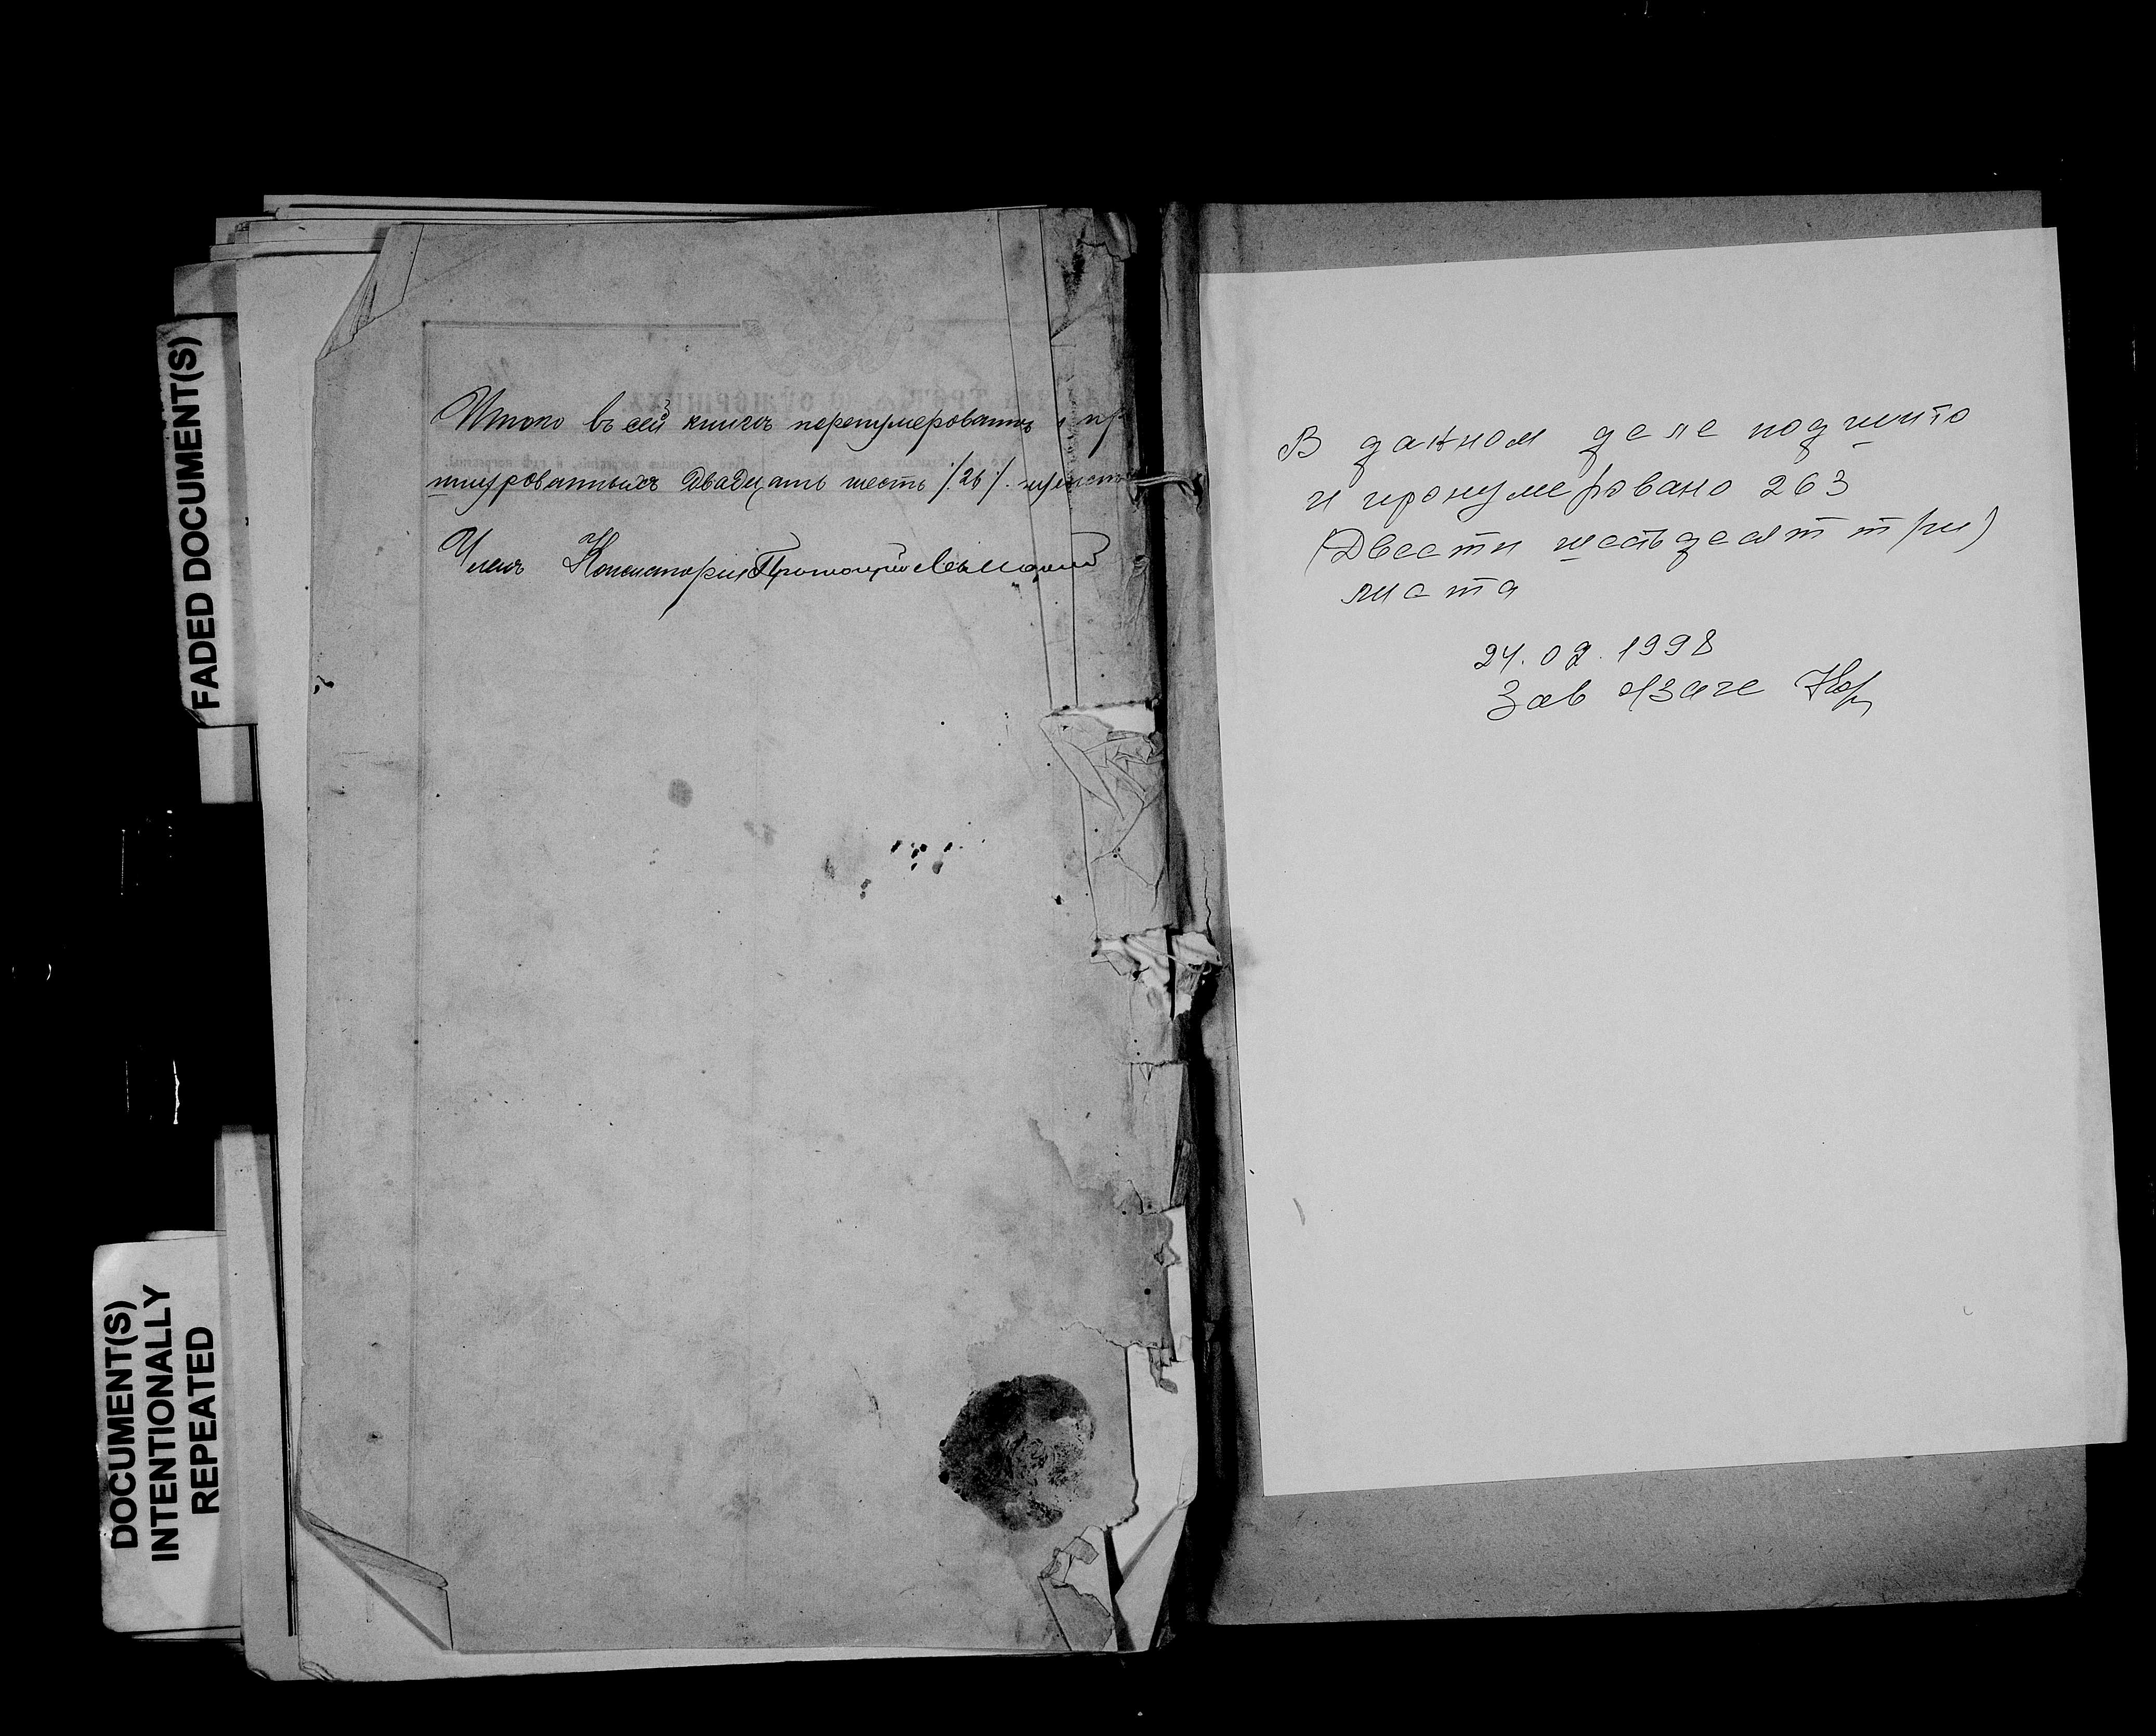 FADED DOCUMENT(S)
DOCUMENT(S)
INTENTIONALLY
REPEATED
Итого въ сей книгѣ перенумерованныхъ и пр
шнурованныхъ двадцать шесть /26/.
Членъ Консисторіи Протоіерей
В данном деле подшито
и пронумеровано 263
(Двести шестьдесят три)
листа
1998
Зав